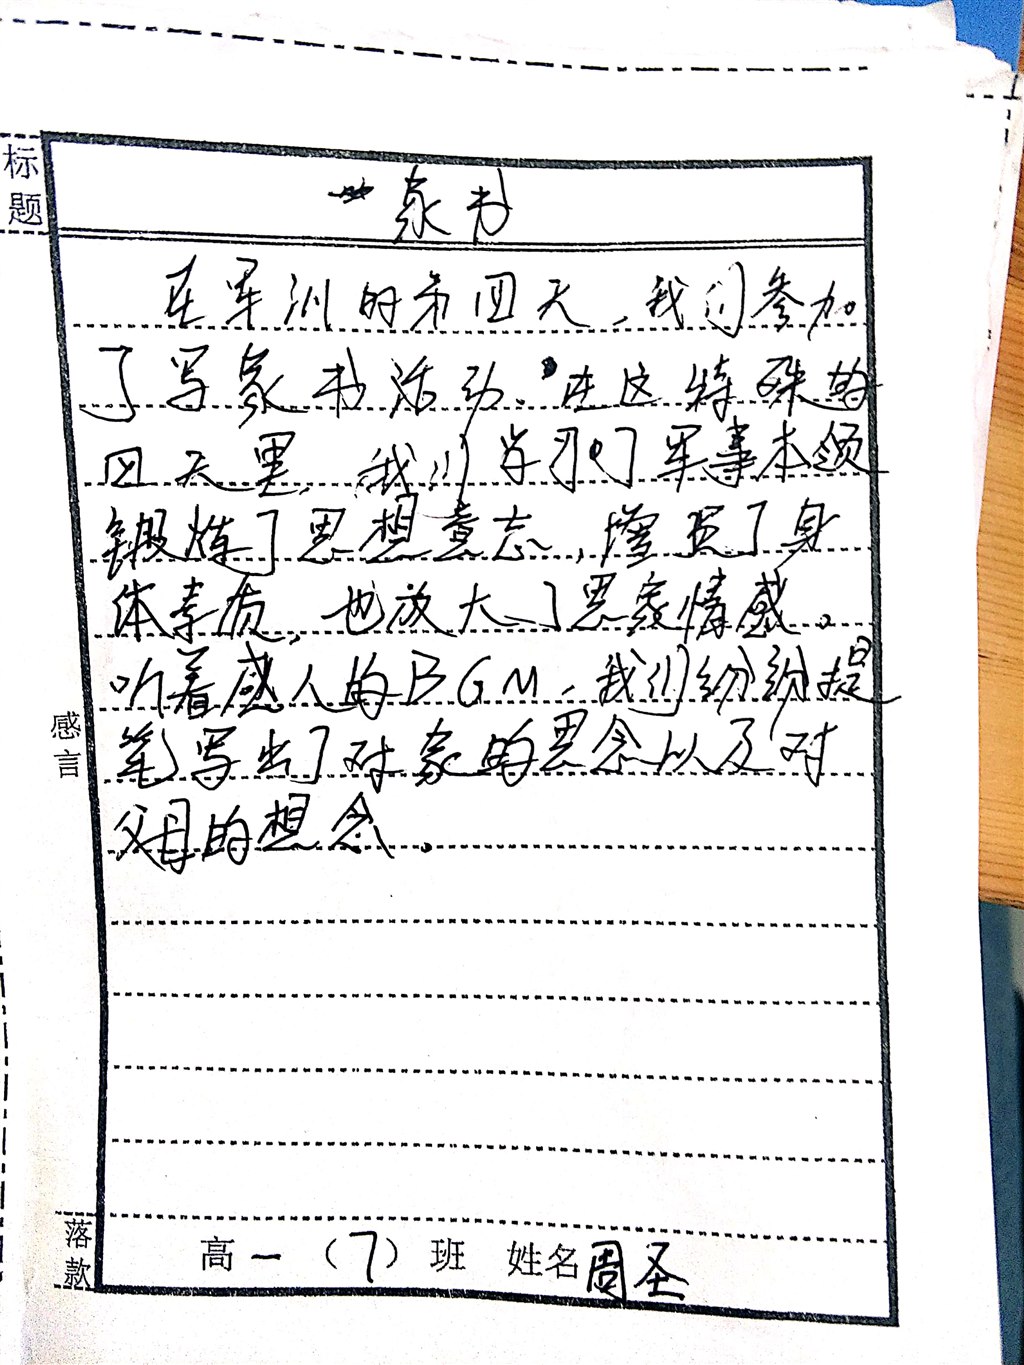 标题
家书
在军训的第四天,我们参加
了写家书活动。在这特殊的
四天里,我们学习了军事本领
锻炼了思想意志,增强了身
体素质,也放大了思家情感。
听着感人的BGM,我们纷纷提
笔写出了对家的思念以及对
父母的想念。
感言
落款 高一(7)班 姓名周圣